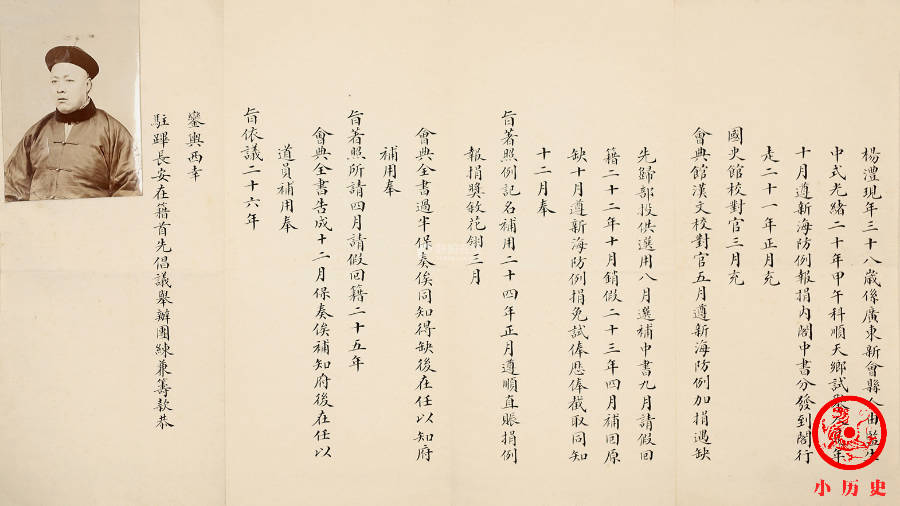 楊澧現年三十八歲係廣東新會縣人由監生
中式光緒二十年甲午科順天鄉試舉人是年
十月遵新海防例報捐內閣中書分發到閣行
走二十一年正月充
國史館校對官三月充
會典館漢文校對官五月遵新海防例加捐遇缺
先歸部投供選用八月選補中書九月請假回
籍二十二年十月銷假二十三年四月補回原
缺十月遵新海防例捐免試俸歷俸截取同知
十二月奉
旨著照例記名補用二十四年正月遵順直賬捐例
報捐獎敘花翎三月
會典全書過半保奏俟同知得缺後在任以知府
補用奉
旨著照所請四月請假回籍二十五年
會典全書告成十二月保奏俟補知府後在任以
道員補用奉
旨依議二十六年
鑾輿西幸
駐蹕長安在籍首先倡議舉辦團練兼籌款恭
小历史